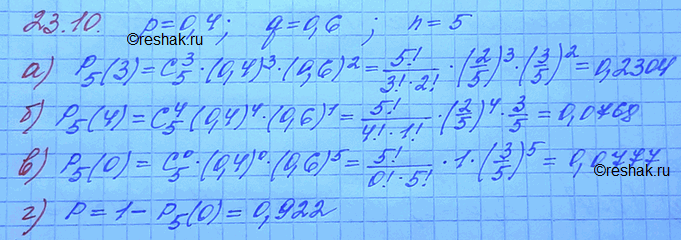 23.10. p=0,4; q=0,6; n=5
©reshak.ru
а) P₅(3)=C₅³·(0,4)³·(0,6)²=5!/(3!·2!)·(2/5)³·(3/5)²=0,2304
б) P₅(4)=C₅⁴(0,4)⁴·(0,6)¹=5!/(4!·1!)·(2/5)⁴·3/5=0,0768
в) P₅(0)=C₅⁰·(0,4)⁰·(0,6)⁵=5!/(0!·5!)·1·(3/5)⁵=0,0777
©reshak.ru
г) P=1-P₅(0)=0,922